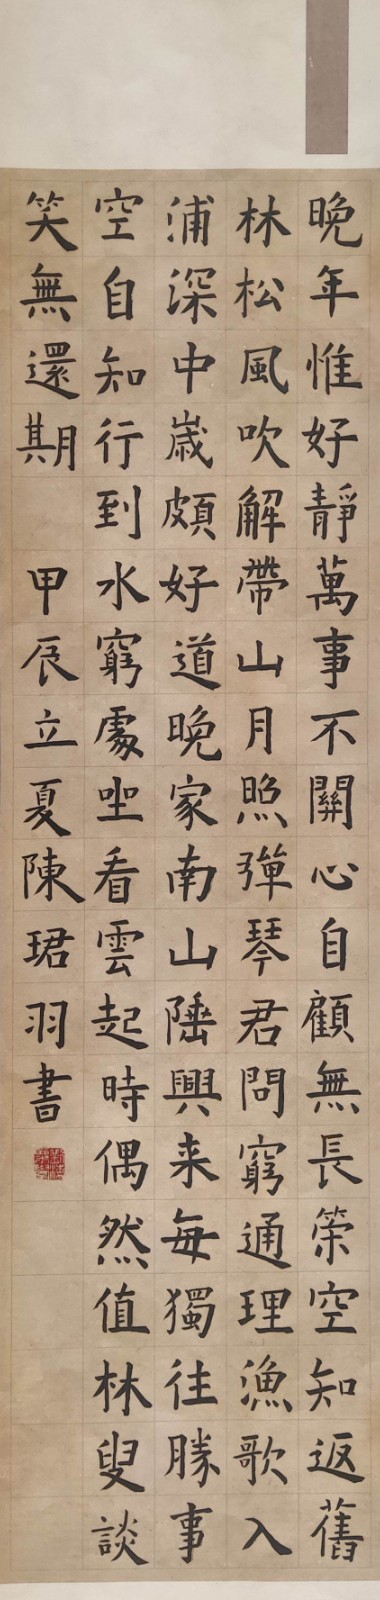 晚年惟好靜萬事不關心自顧無長策空知返舊
林松風吹解帶山月照彈琴君問窮通理漁歌入
浦深中歲頗好道晚家南山陲興来每獨往勝事
空自知行到水窮處坐看雲起時偶然值林叟談
笑無還期 甲辰立夏陳珺羽書